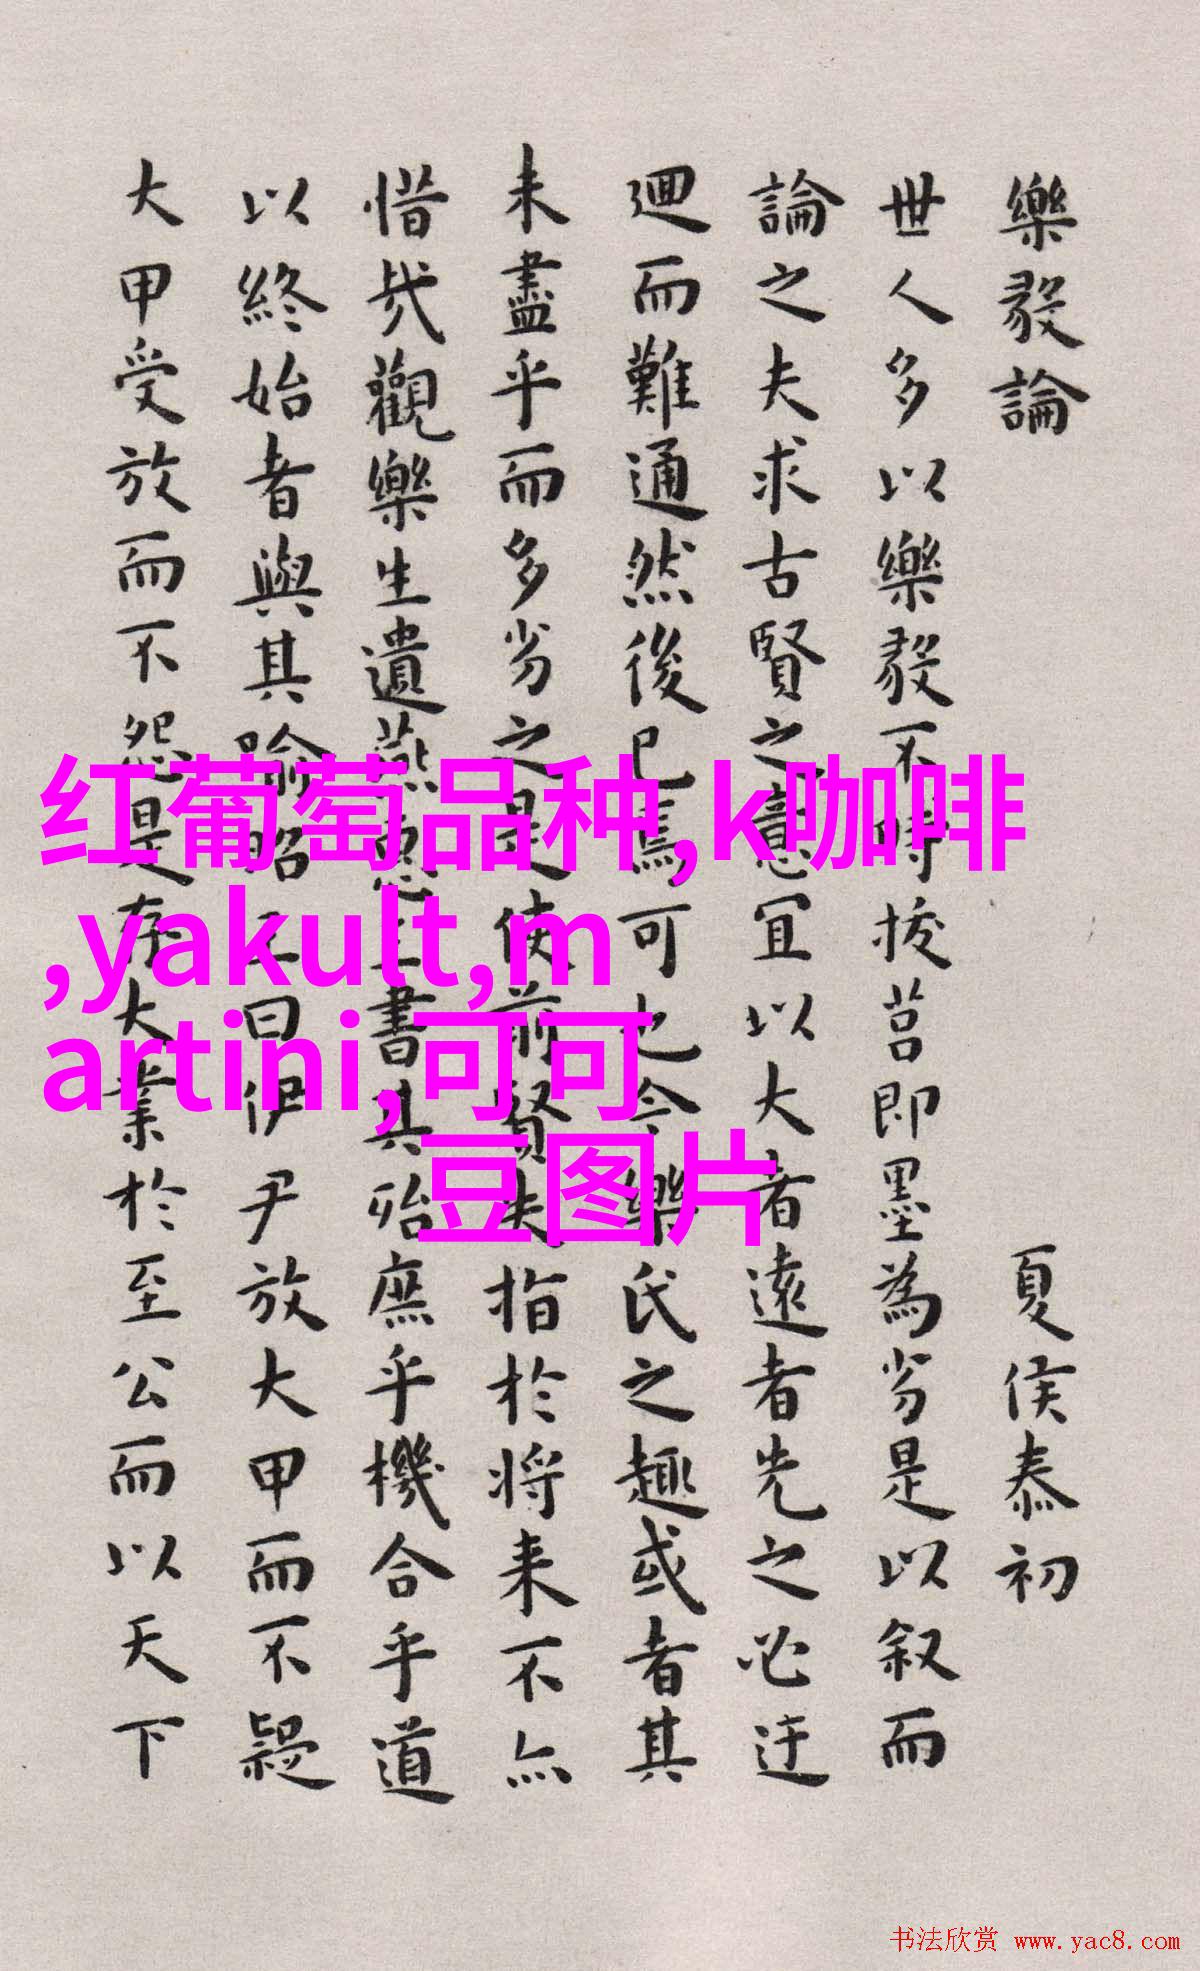 樂毅論 夏侯泰初
世人多以樂毅不時拔莒即墨為劣是以叙而
論之夫求古賢之意宜以大者遠者先之必迂
迴而難通然後已焉可也今樂氏之趣或者其
未盡乎而多劣之是使前賢失指於將来不亦
惜哉觀樂生遺燕惠王書其殆庶乎機合乎道
以終始者與其喻昭王曰伊尹放大甲而不疑
大甲受放而不怨是存大業於至公而以天下
红葡萄品种,k咖啡
,yakult,m
artini,可可
豆图片
书法欣赏 www.yac8.com